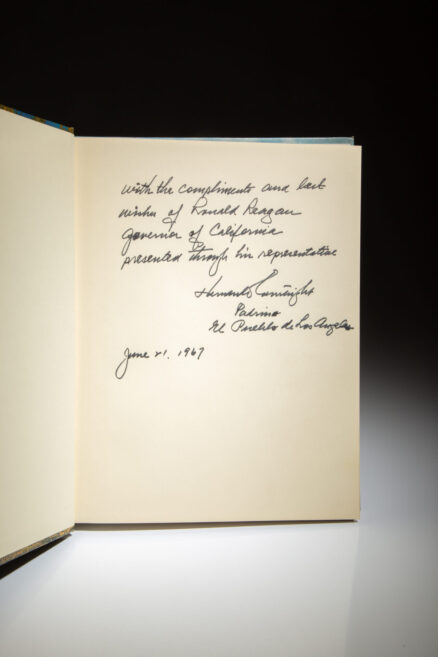 with the compliments and best
wishes of Ronald Reagan
governor of California
presented through his representative
Cartwright
Padrino
El Pueblo de Los Angeles
June 21, 1967